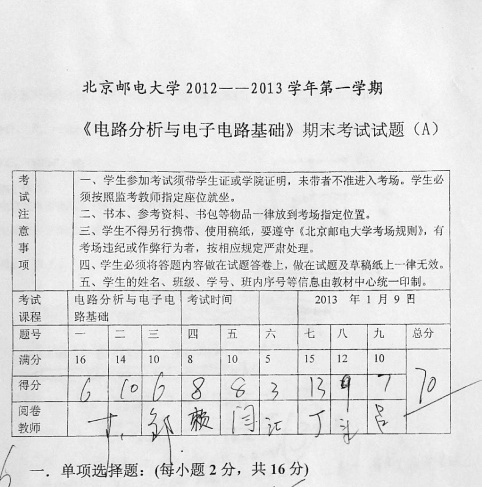 北京邮电大学 2012——2013 学年第一学期
《电路分析与电子电路基础》期末考试试题（A）
考试注意事项
一、学生参加考试须带学生证或学院证明，未带者不准进入考场。学生必
须按照监考教师指定座位就坐。
二、书本、参考资料、书包等物品一律放到考场指定位置。
三、学生不得另行携带、使用稿纸，要遵守《北京邮电大学考场规则》，有
考场违纪或作弊行为者，按相应规定严肃处理。
四、学生必须将答题内容做在试题答卷上，做在试题及草稿纸上一律无效。
五、学生的姓名、班级、学号、班内序号等信息由教材中心统一印制。
考试课程 电路分析与电子电路基础 考试时间 2013 年 1 月 9 日
题号 一 二 三 四 五 六 七 八 九 总分
满分 16 14 10 8 10 5 15 12 10
得分 6 10 6 8 8 3 13 9 7 70
阅卷教师
一．单项选择题：(每小题 2 分，共 16 分)